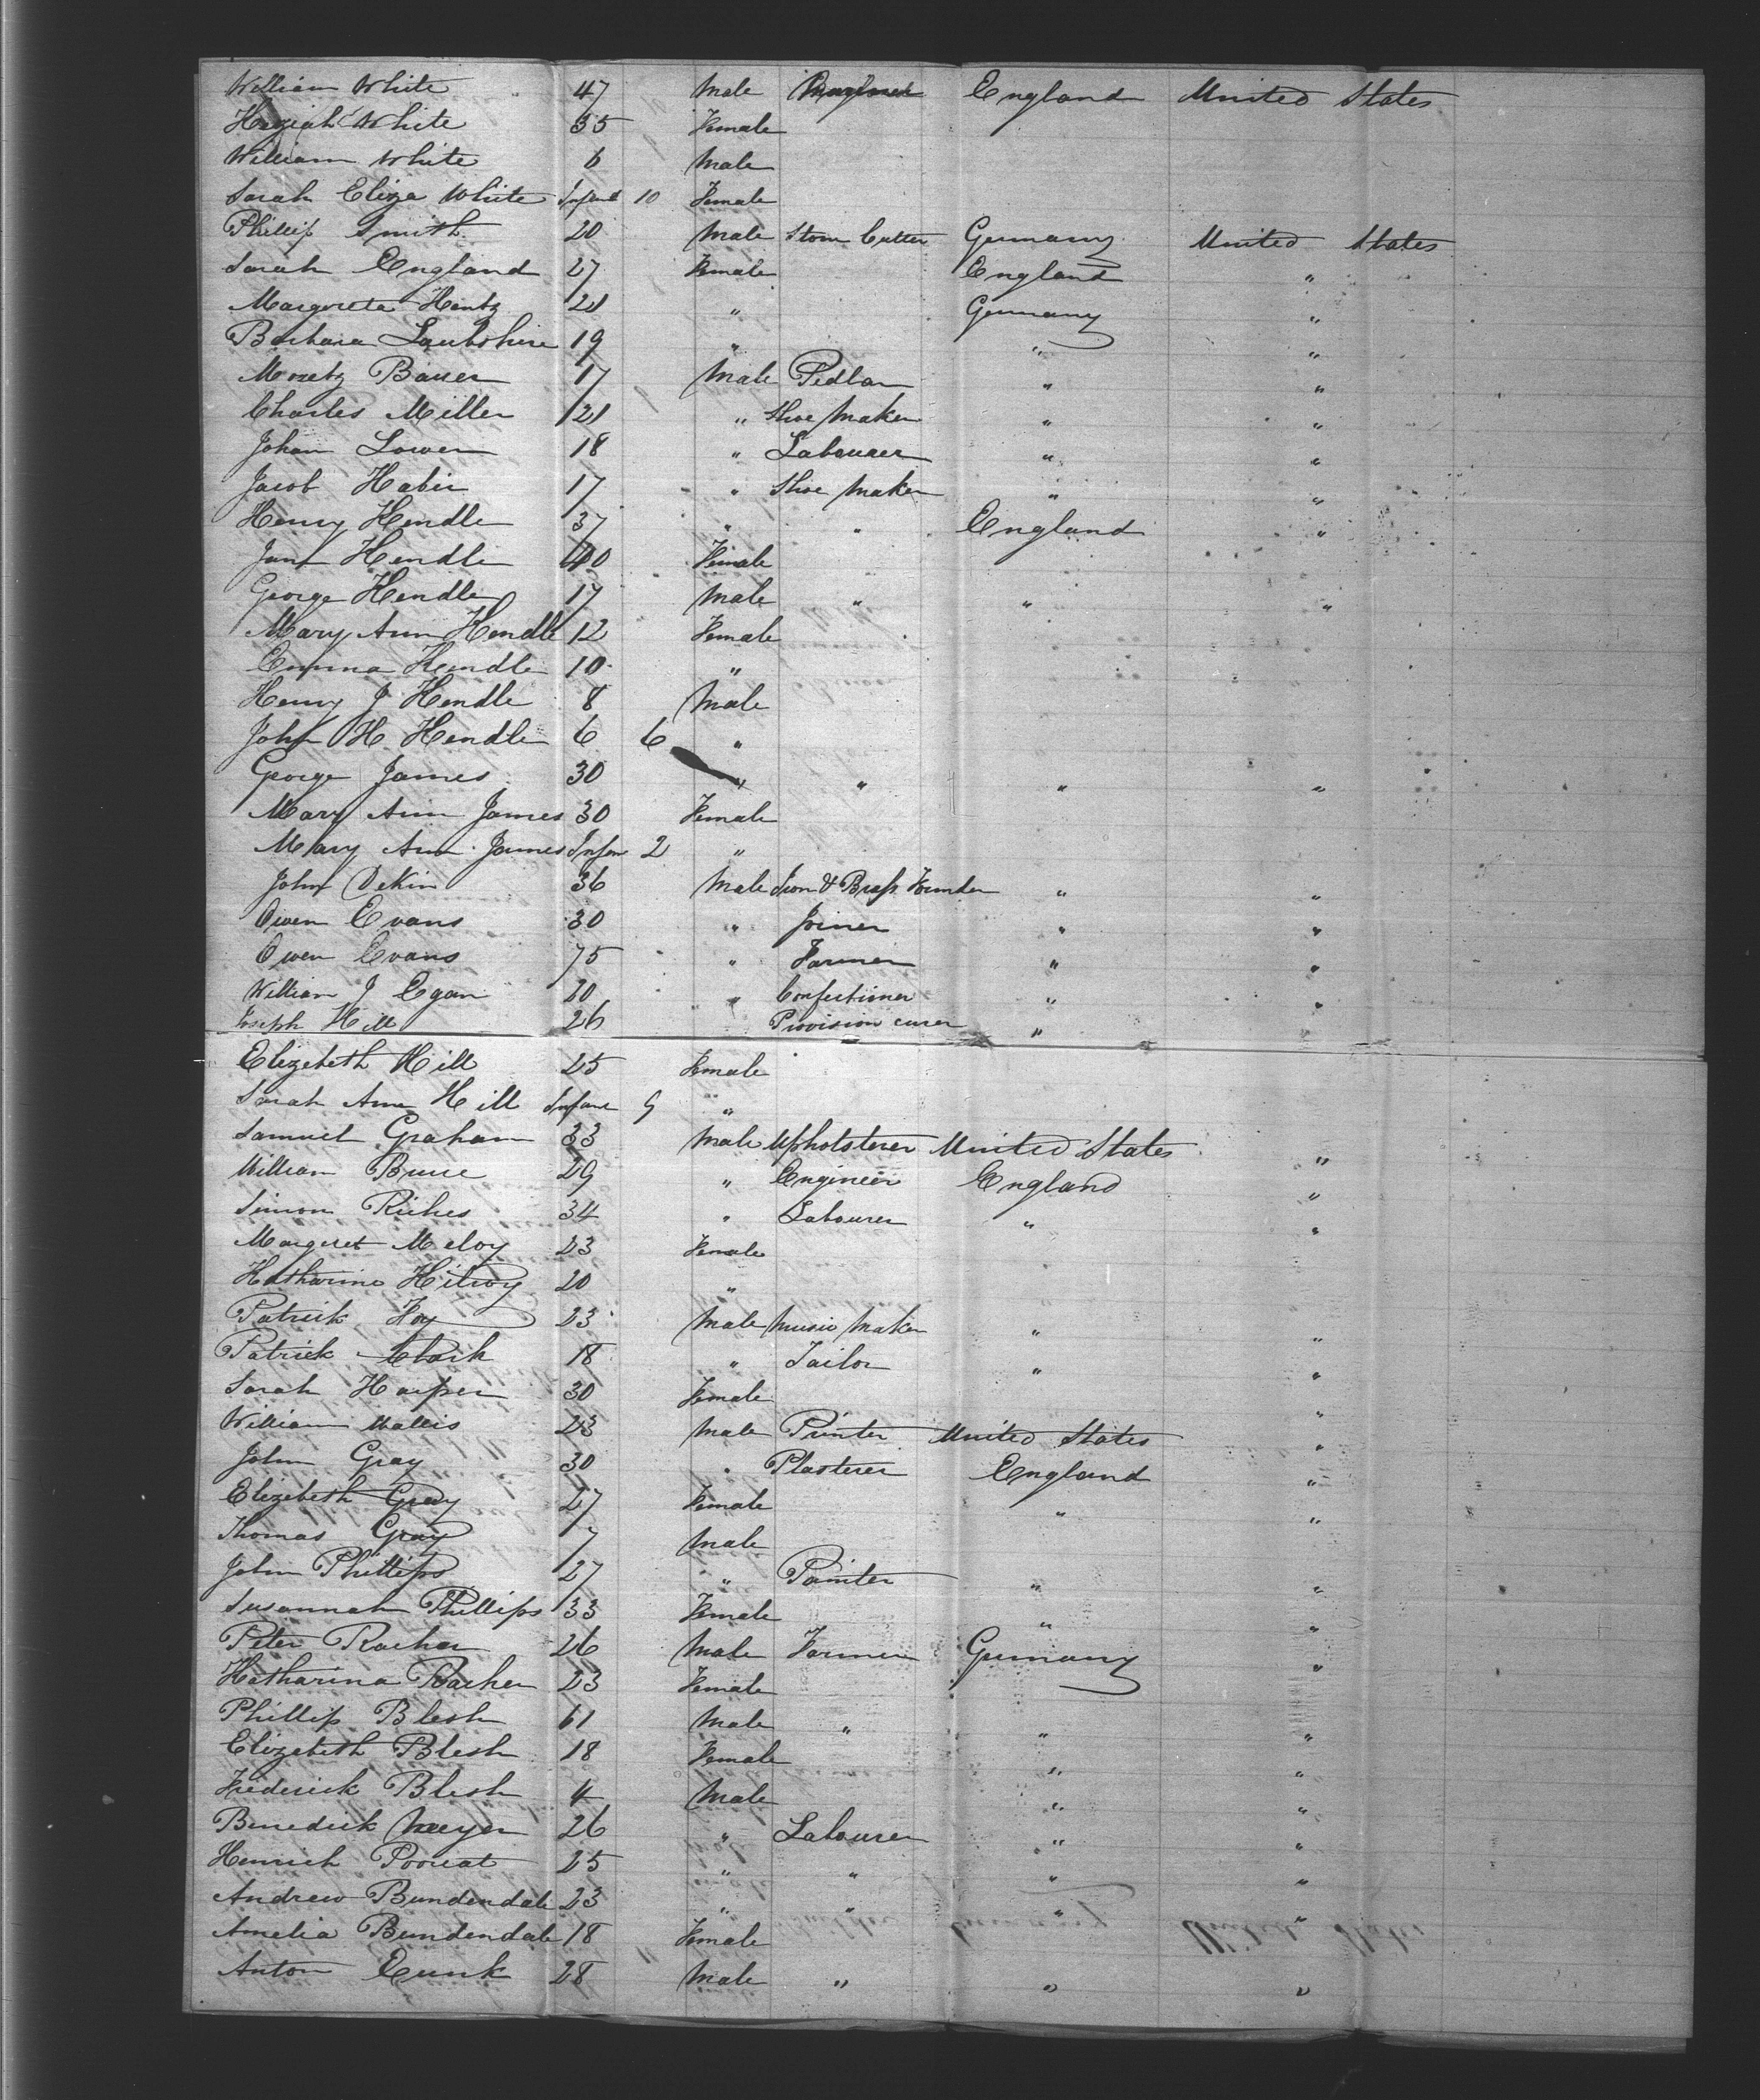 William White 47 Male England United States
Keziah White 35 Female
William White 6 Male
Sarah Eliza White Infant 10 Female
Phillip Smith 20 Male Stone Cutter Germany United States
Sarah England 27 Female England "
Margreta Hentz 21 " Germany "
Barbara 19 " " "
Moretz Bauer 17 Male Pedlar " "
Charles Miller 21 " Shoe Maker " "
Johan Lower 18 " Labourer " "
Jacob Haber 17 " Shoe Maker " "
Henry Hendle 37 " " England "
Jane Hendle 40 Female
George Hendle 17 Male " " "
Mary Ann Hendle 12 Female
Emma Hendle 10 "
Henry J Hendle 8 Male
John H Hendle 6 6 "
George James 30 " " " "
Mary Ann James 30 Female
Mary Ann James Infan 2 "
John Dekin 36 Male Iron & Brass Founder " "
Owen Evans 30 " Joiner " "
Owen Evans 75 " Farmer " "
William J Egan 20 " Confectioner " "
Joseph Hill 26 Provision curer "
Elizebeth Hill 25 Female
Sarah Ann Hill Infant 9 "
Samuel Graham 33 Male Upholsterer United States "
William 29 " Engineer England "
Simon Riches 34 " Labourer " "
Margeret Meloy 23 Female
Katharine Kilroy 20 "
Patrick Foy 23 Male Music Maker " "
Patrick Clark 18 " Tailor " "
Sarah Harper 30 Female "
William Wallis 23 Male Printer United States "
John Gray 30 " Plasterer England "
Elizebeth Gray 27 Female " "
Thomas Gray 7 Male
John Phillips 27 " Painter " "
Susannah Phillips 33 Female " "
Peter Racher 26 Male Farmer Germany "
Katharina Racher 23 Female
Phillip Blesh 61 Male " " "
Elizebeth Blesh 18 Female " "
Frederick Blesh 4 Male " "
Benedick Meyer 26 " Labourer " "
Henrich 25 " " " "
Andrew Bundendale 23 " " " "
Amelia Bundendale 18 Female
Anton 28 Male " " "